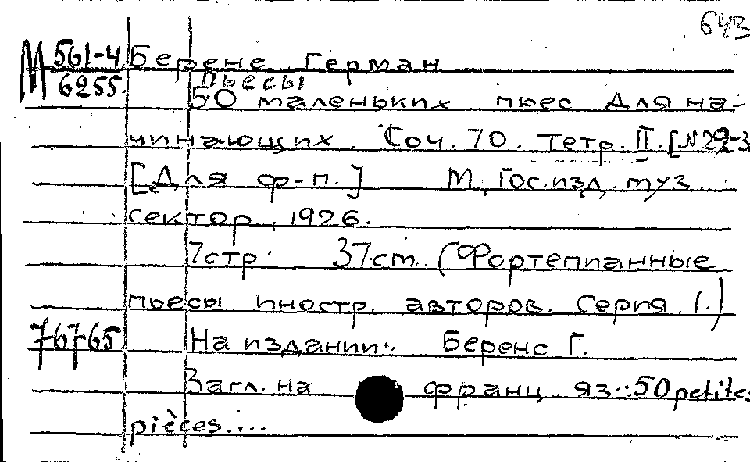 643
М 561-4 Беренс Герман
6255 Пьесы
50 маленьких пьес для на-
чинающих. Соч. 70. Тетр. II. [№ 22-3
[Для ф-п.] М., Гос. изд. муз.
сектор, 1926.
7стр. 37cm. (Фортепианные
пьесы иностр. авторов. Серия I.)
76765 На издании: Беренс Г.
Загл. на франц. яз.: 50 petites
pièces....